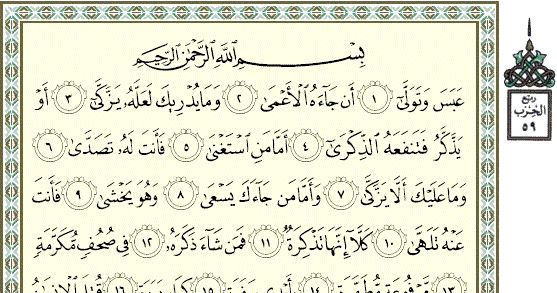 بِسْمِ ٱللَّهِ ٱلرَّحْمَٰنِ ٱلرَّحِيمِ
عَبَسَ وَتَوَلَّىٰٓ ١ أَن جَآءَهُ ٱلْأَعْمَىٰ ٢ وَمَا يُدْرِيكَ لَعَلَّهُۥ يَزَّكَّىٰٓ ٣ أَوْ
يَذَّكَّرُ فَتَنفَعَهُ ٱلذِّكْرَىٰٓ ٤ أَمَّا مَنِ ٱسْتَغْنَىٰ ٥ فَأَنتَ لَهُۥ تَصَدَّىٰ ٦
وَمَا عَلَيْكَ أَلَّا يَزَّكَّىٰ ٧ وَأَمَّا مَن جَآءَكَ يَسْعَىٰ ٨ وَهُوَ يَخْشَىٰ ٩ فَأَنتَ
عَنْهُ تَلَهَّىٰ ١٠ كَلَّآ إِنَّهَا تَذْكِرَةٌ ١١ فَمَن شَآءَ ذَكَرَهُۥ ١٢ فِى صُحُفٍ مُّكَرَّمَةٍ
١٣ مَّرْفُوعَةٍ مُّطَهَّرَةٍۭ ١٤ بِأَيْدِى سَفَرَةٍ ١٥ كِرَامٍۭ بَرَرَةٍ ١٦ قُتِلَ ٱلْإِنسَٰنُ
ربع
الحزب
٥٩